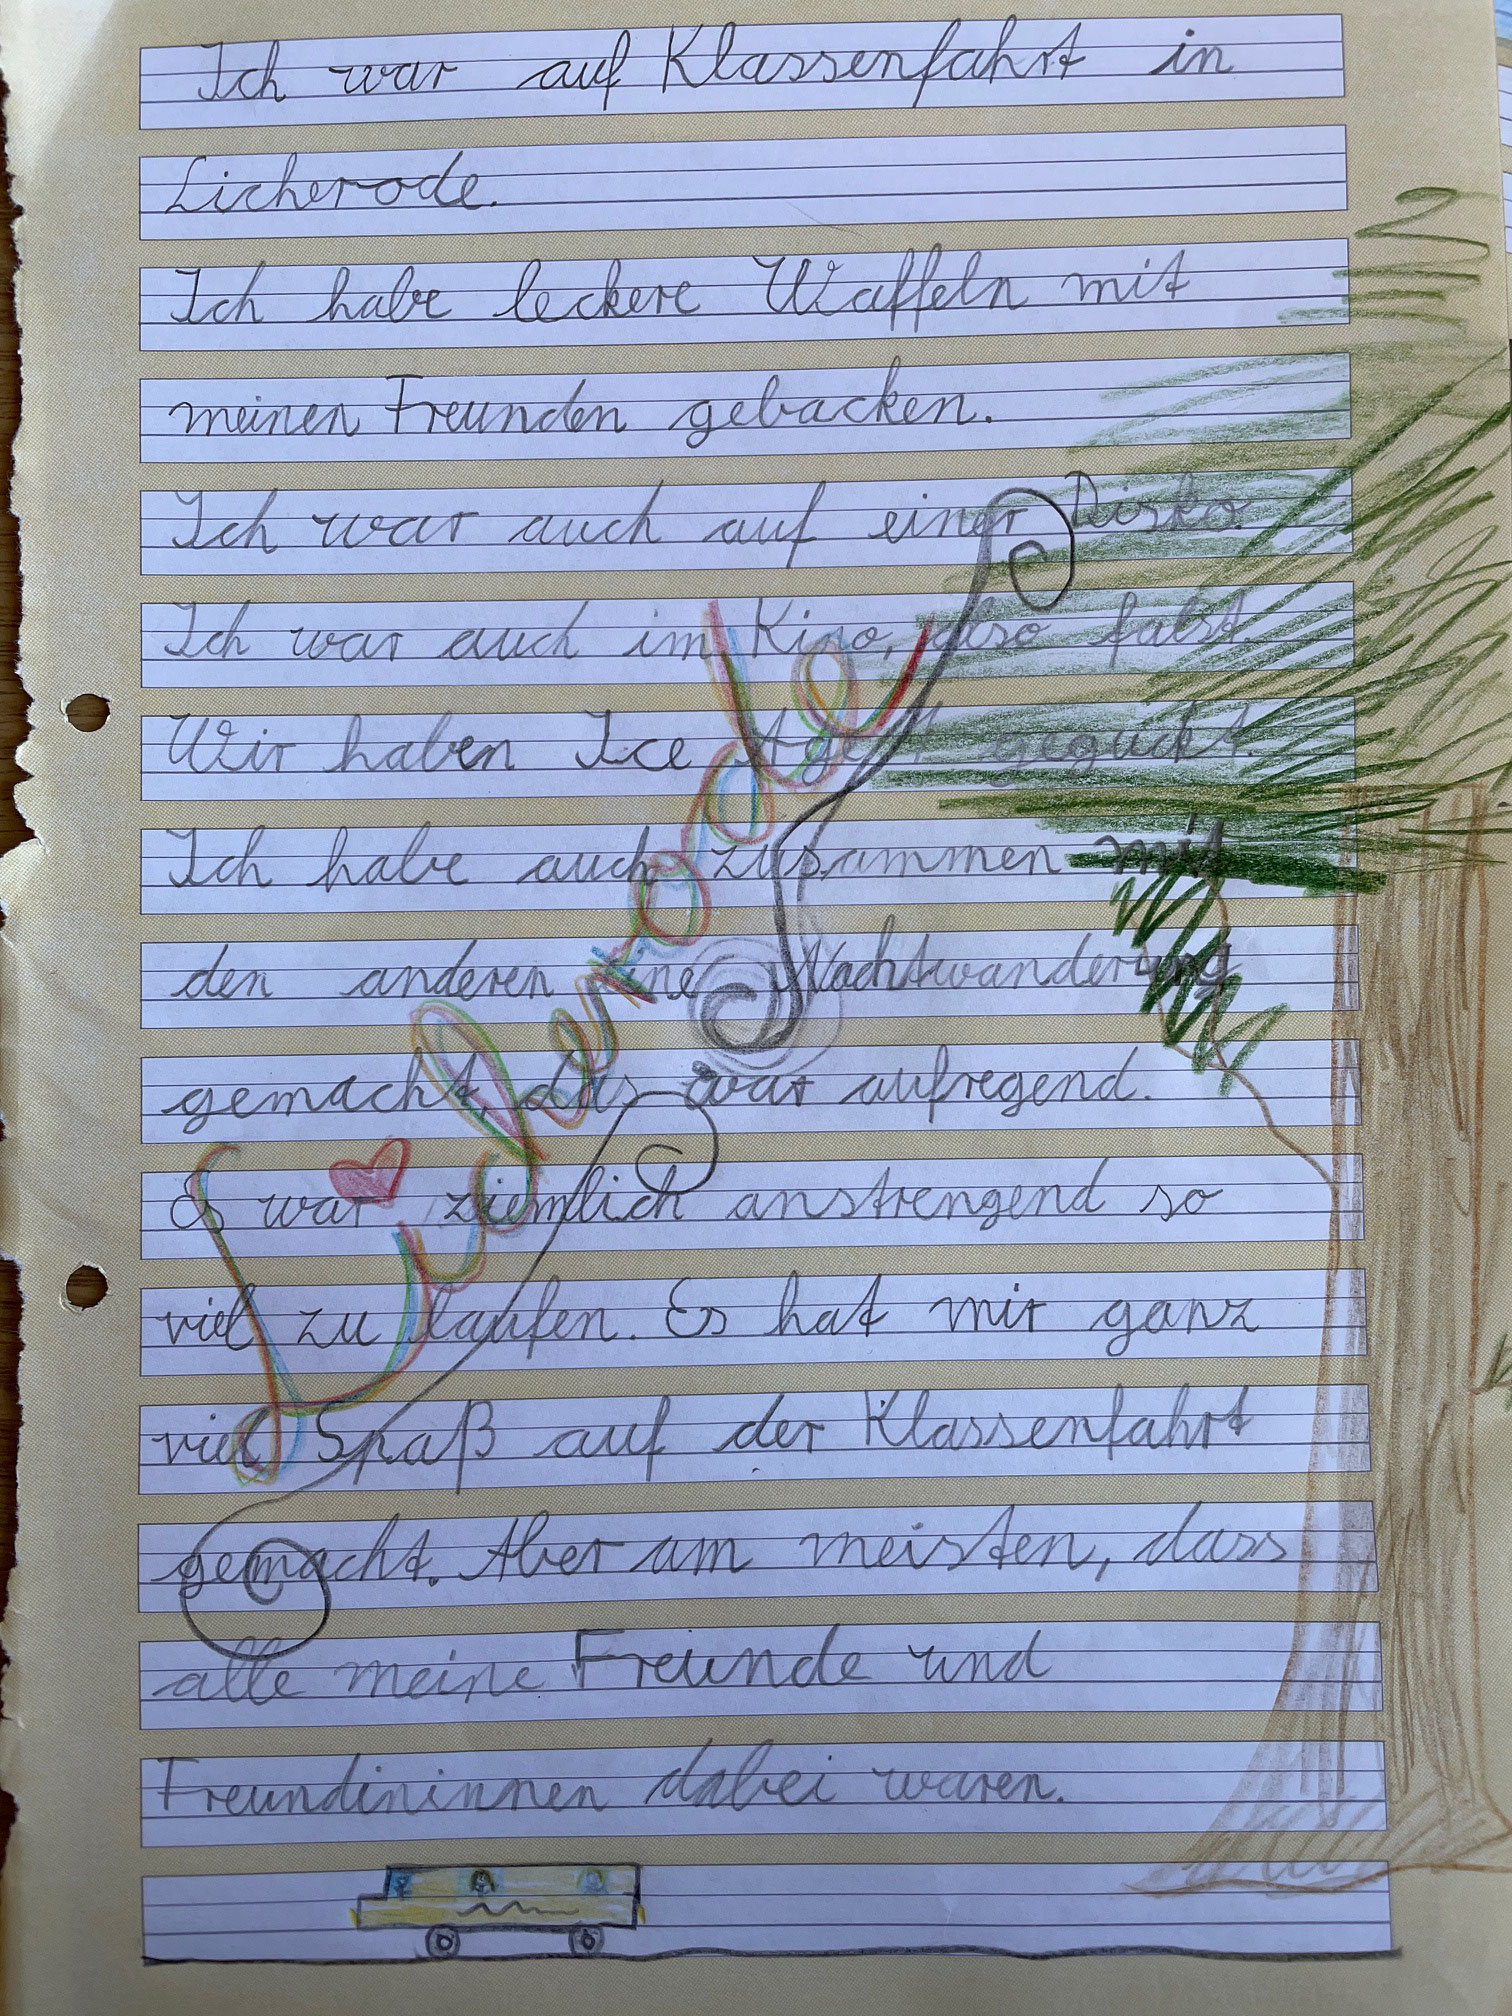 Ich war auf Klassenfahrt in
Licherode.
Ich habe leckere Waffeln mit
meinen Freunden gebacken.
Ich war auch auf einer Disko.
Ich war auch im Kino, also falst.
Wir haben Ice Age 4 geguckt.
Ich habe auch zusammen mit
den anderen eine Nachtwanderung
gemacht, das war aufregend.
Es war ziemlich anstrengend so
viel zu laufen. Es hat mir ganz
viel Spaß auf der Klassenfahrt
gemacht. Aber am meisten, dass
alle meine Freunde und
Freundininnen dabei waren.
Licherode